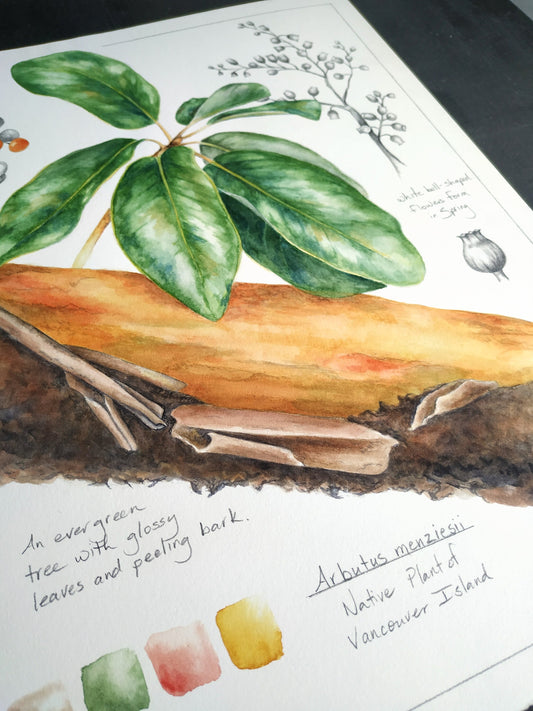 White bell-shaped
flowers form
in Spring
An evergreen
tree with glossy
leaves and peeling bark.
Arbutus menziesii
Native Plant of
Vancouver Island